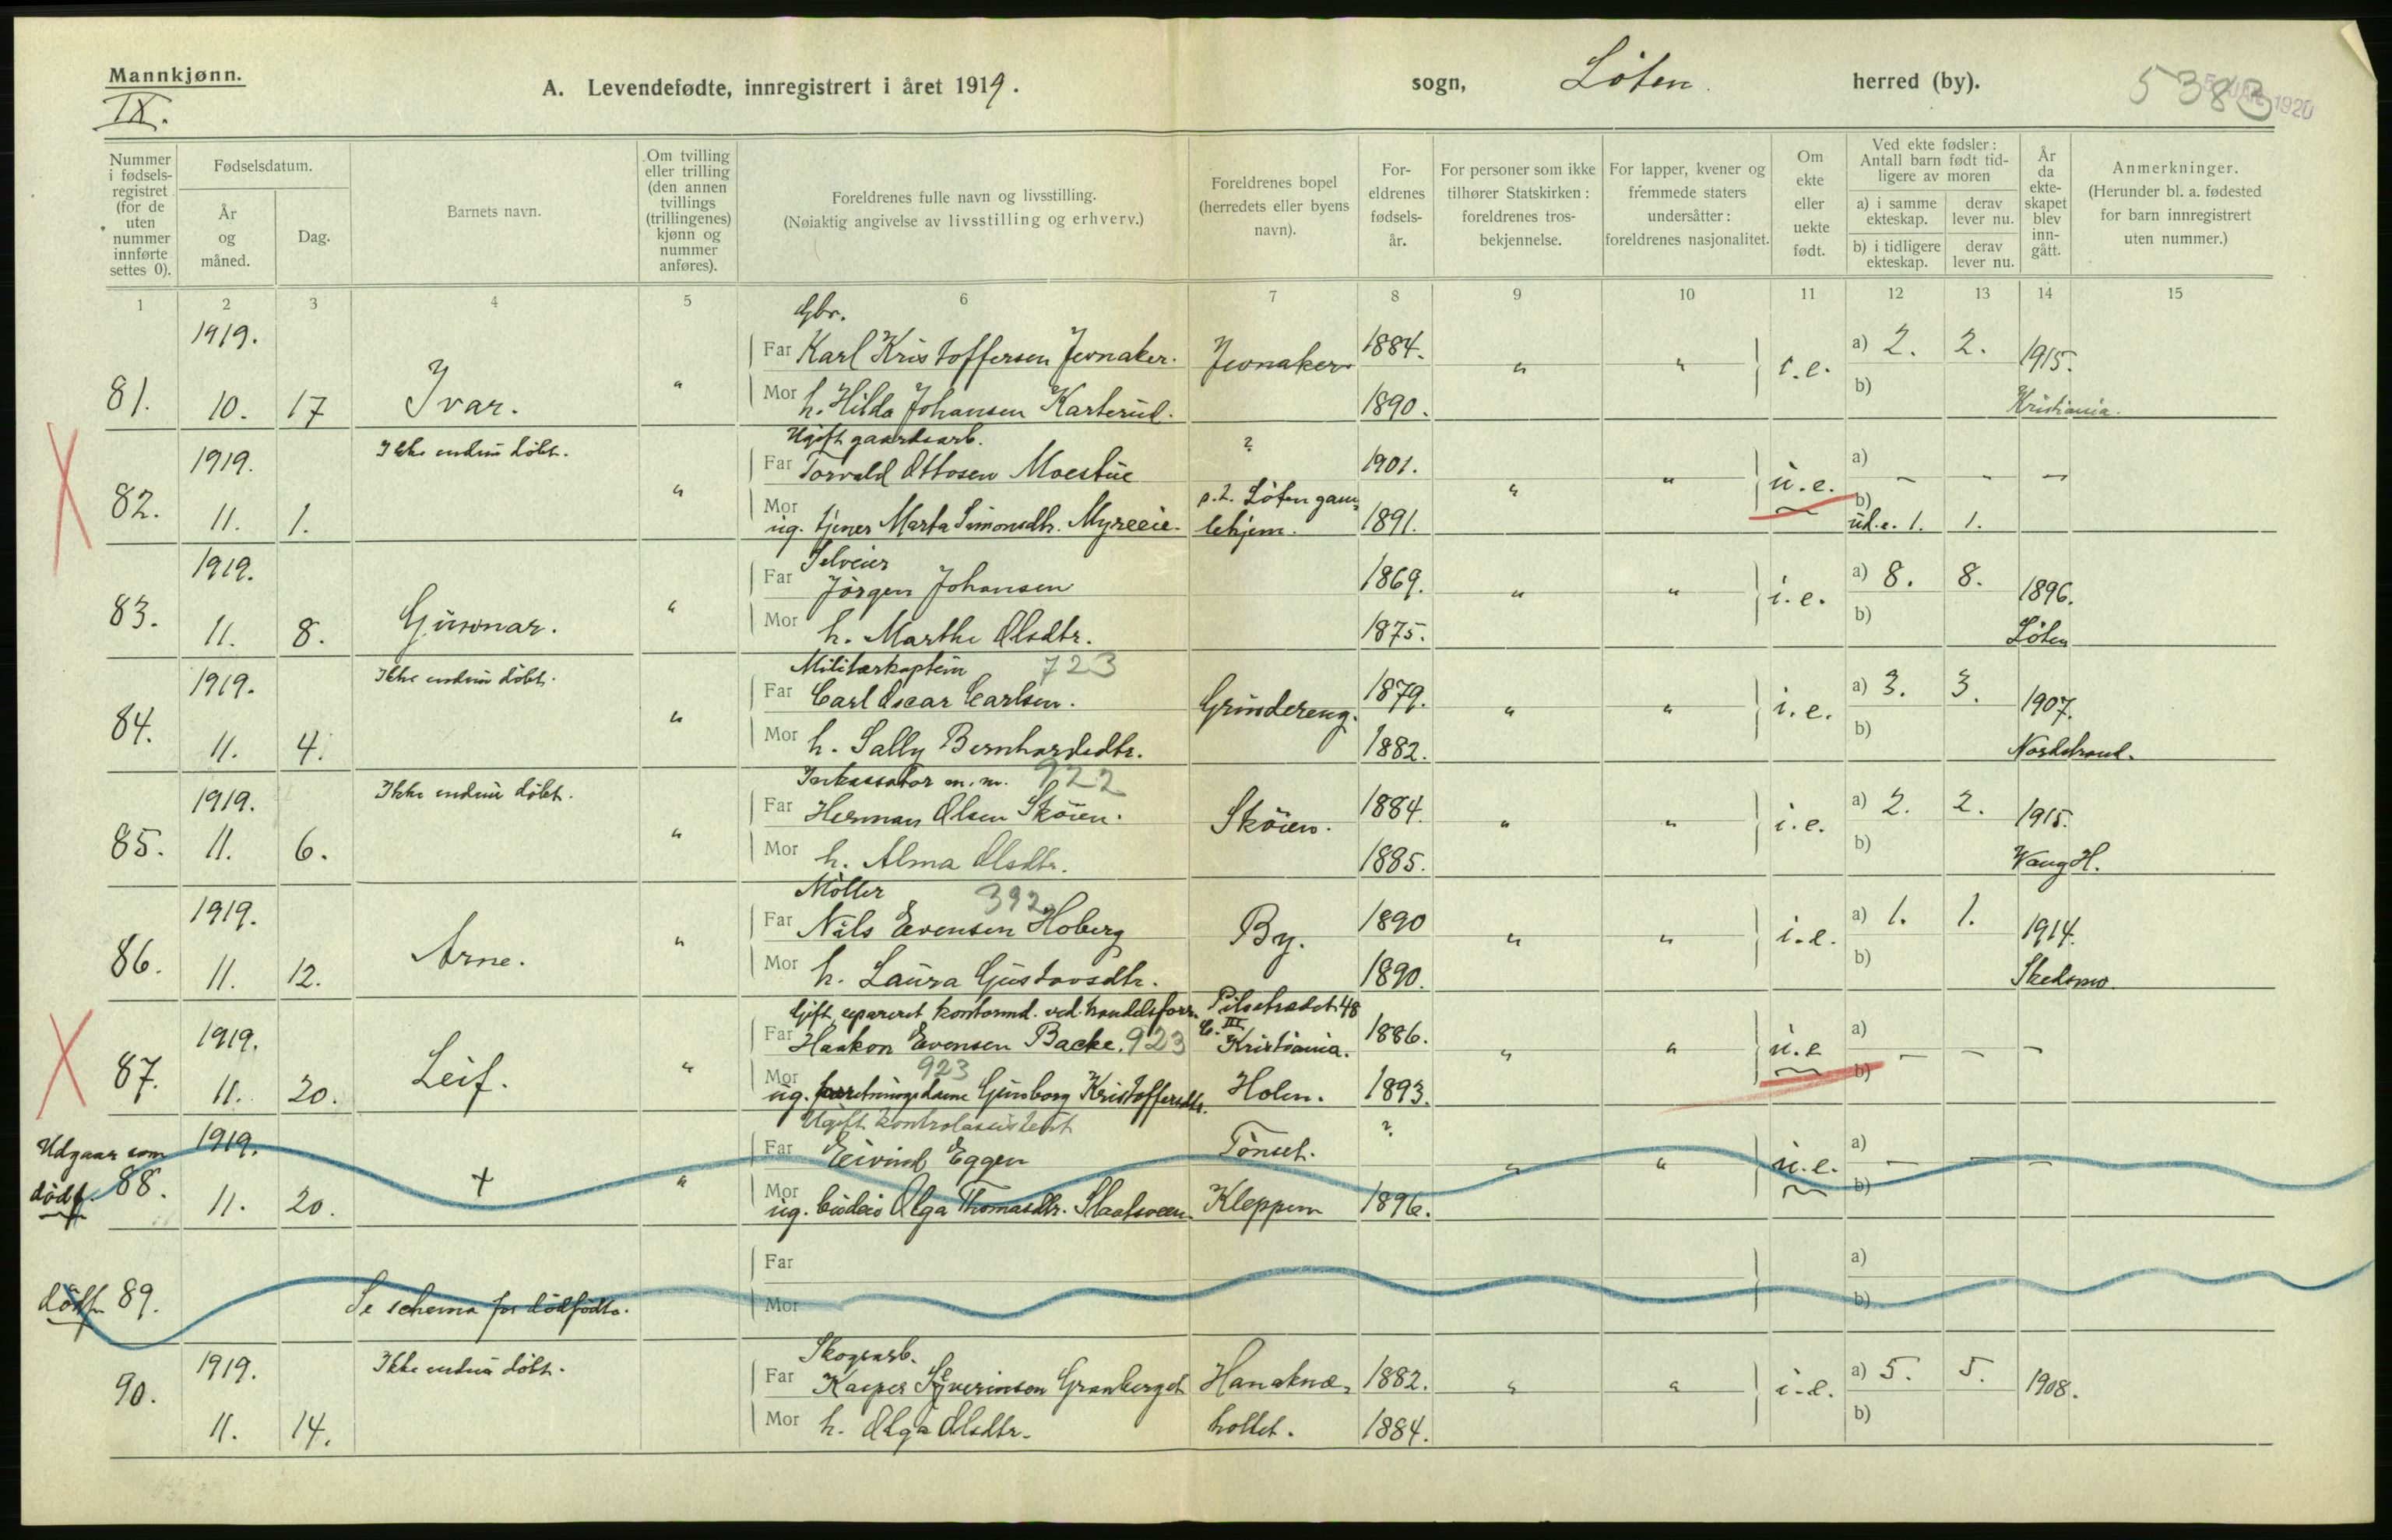 Mannkjønn.
IX.
A. Levendefødte, innregistrert i året 1919.
sogn, Löten herred (by).
5383
1920
Nummer i fødsels-registret (for de uten nummer innførte settes 0).
Fødselsdatum.
År og måned.
Dag.
Barnets navn.
Om tvilling eller trilling (den annen tvillings (trillingenes) kjønn og nummer anføres).
Foreldrenes fulle navn og livsstilling.
(Nøiaktig angivelse av livsstilling og erhverv.)
Foreldrenes bopel (herredets eller byens navn).
For-eldrenes fødsels-år.
For personer som ikke tilhører Statskirken: foreldrenes tros-bekjennelse.
For lapper, kvener og fremmede staters undersåtter: foreldrenes nasjonalitet.
Om ekte eller uekte født.
Ved ekte fødsler: Antall barn født tid-ligere av moren
a) i samme ekteskap.
derav lever nu.
b) i tidligere ekteskap.
derav lever nu.
År da ekte-skapet blev inn-gått.
Anmerkninger.
(Herunder bl. a. fødested for barn innregistrert uten nummer.)
1 2 3 4 5 6 7 8 9 10 11 12 13 14 15
Gbr.
1919. Far Karl Kristoffersen Jevnaker. Jevnaker 1884. " " i.e. a) 2. 2. 1915.
81. 10. 17 Ivar. " Mor h. Hilda Johansen Karterud. 1890. b) Kristiania.
Ikke endnu döbt. Ugift gaardsarb. ?
1919. Far Torvald Ottosen Moestue 1901. " " u.e. a) – – –
82. 11. 1. " Mor ug. tjener Marta Simonsdtr. Myreeie. p.t. Löten gam=lehjem. 1891. b) ud.e. 1. 1.
Selveier
1919. Far Jörgen Johansen 1869. " " i.e. a) 8. 8. 1896.
83. 11. 8. Gunnar. " Mor h. Marthe Olsdtr. 1875. b) Löten
Ikke endnu döbt. Militærkaptein 723
1919. Far Carl Oscar Carlsen. Grindereng. 1879. " " i.e. a) 3. 3. 1907.
84. 11. 4. " Mor h. Sally Bernhardsdtr. 1882. b) Nordstrand.
Ikke endnu döbt. Inkassator m.m. 922
1919. Far Herman Olsen Sköien. Sköien. 1884. " " i.e. a) 2. 2. 1915.
85. 11. 6. " Mor h. Alma Olsdtr. 1885. b) Vang H.
Möller 392
1919. Far Nils Evensen Hoberg By. 1890 " " i.e. a) 1. 1. 1914.
86. 11. 12. Arne. " Mor h. Laura Gustavsdtr. 1890. b) Skedsmo
Gift, separeret kontormd. ved handelsforr. Pilestrædet 48
1919. Far Haakon Evensen Backe. 923 C. III Kristiania. 1886. " " u.e a) – – –
923
87. 11. 20. Leif. " Mor ug. forretningsdame Gunborg Kristoffersdtr. Holen. 1893. b)
Ugift kontrolassistent ?
Udgaar som dödf. 1919. Far Eivind Eggen Tönset. " " u.e. a) – – –
88. 11. 20. + " Mor ug. Olga Thomasdtr. Slaatsveen. Kleppen 1896. b)
Far a)
dödf. 89. Se schema for dödfödte. Mor b)
Ikke endnu döbt. Skogsarb.
1919. Far Kasper Severinson Granberget Hanaknæ= 1882. " " i.e. a) 5. 5. 1908.
90. 11. 14. Mor h. Olga Olsdtr. holtet. 1884. b)